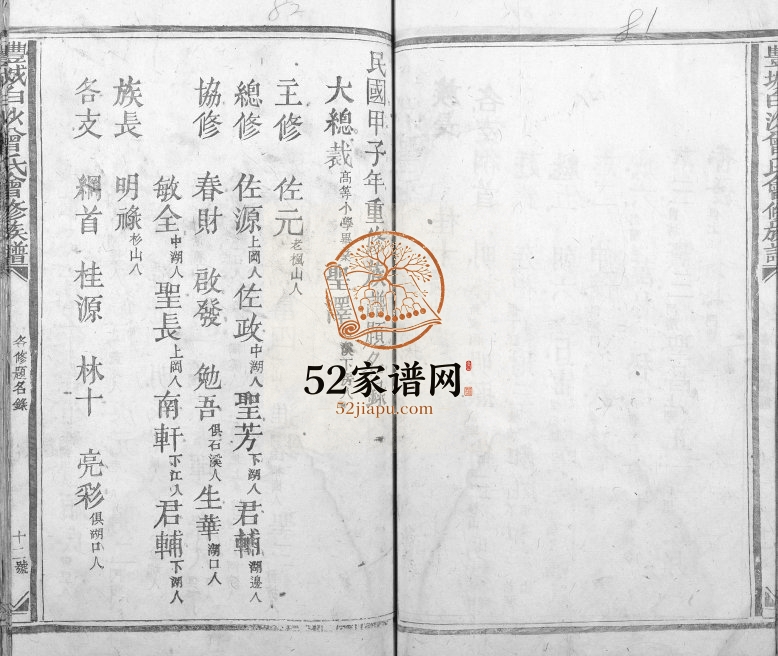 81
82
民國甲子年重修
大總裁 高等小學畢 聖
主修 佐元 老楓山人
總修 佐源 上岡人 佐政 中湖人 聖芳 下湖人 君輔 湖邊人
協修 春財 啟發 勉吾 俱石溪人 生華 湖口人
敏全 中湖人 聖長 上岡人 南軒 下江人 君輔 下湖人
族長 明祿 杉山人
各支 綱首 桂源 林十 亮彩 俱湖口人
曾氏會修族譜
各修題名錄
十二號
52家谱网
52jiapu.com